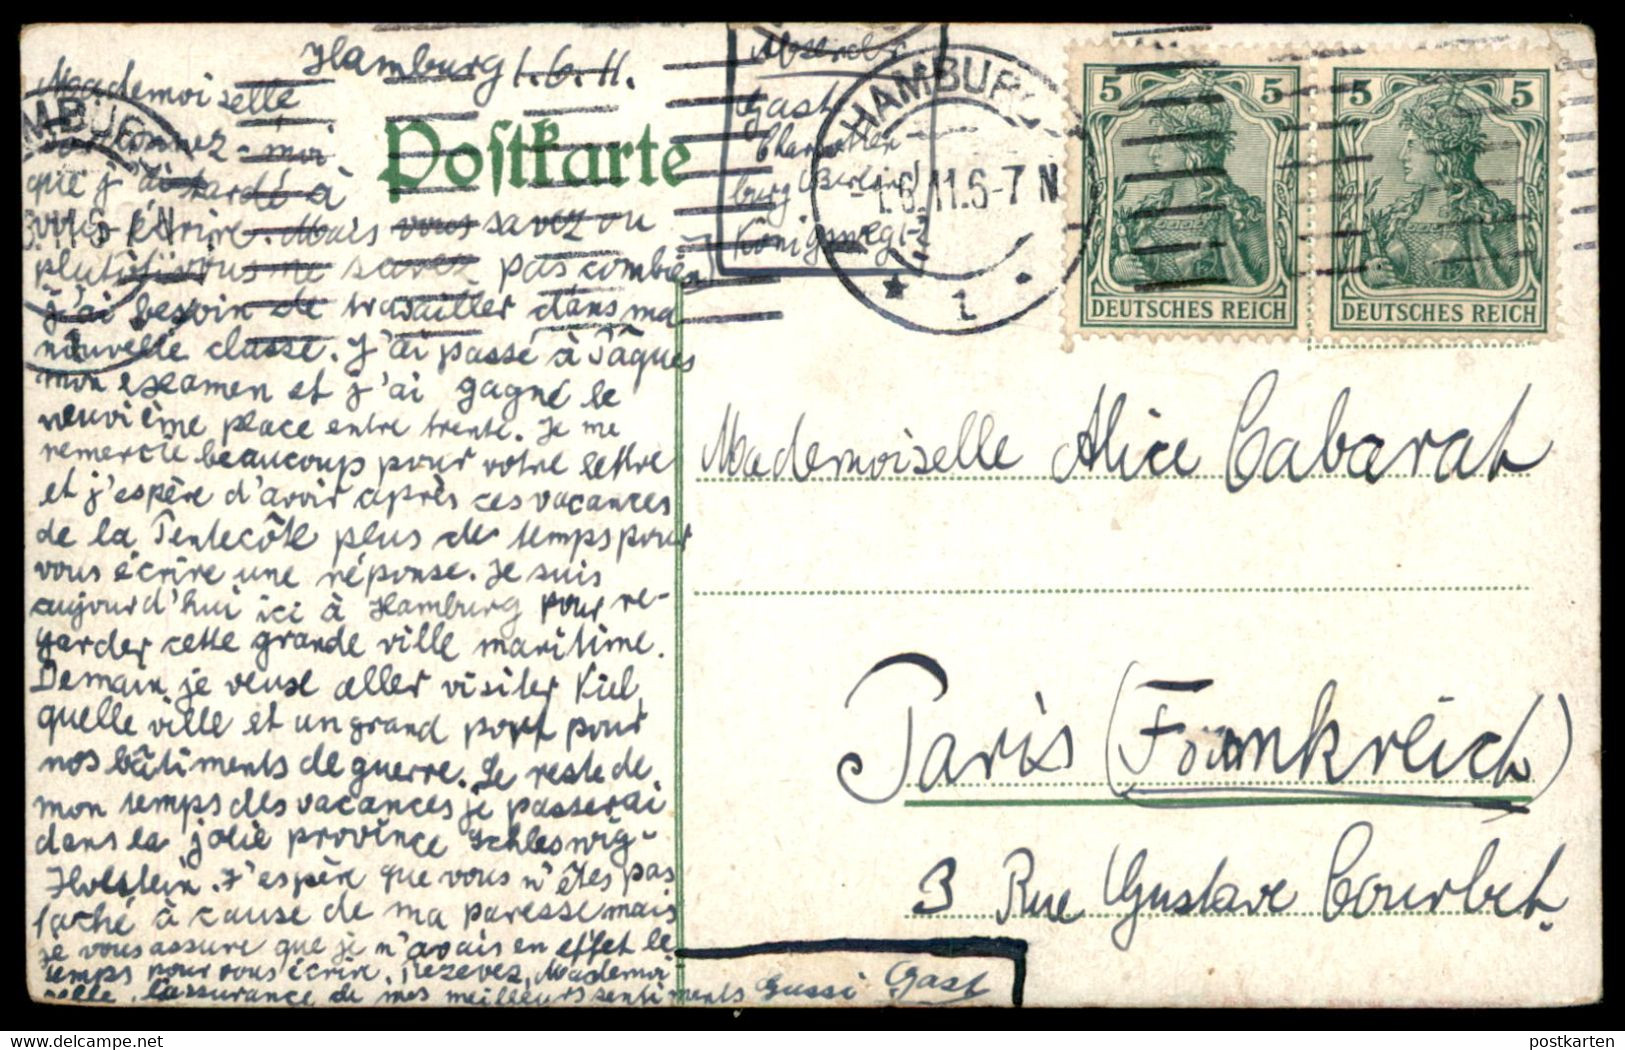 Hamburg 1.6.11.
Mademoiselle
Pardonnez-moi
que j'ai tardé à
vous écrire. Mais vous savez ou
plutôt vous ne savez pas combien
j'ai besoin de travailler dans ma
nouvelle classe. J'ai passé à Pâques
mon examen et j'ai gagné le
neuvième place entre trente. Je me
remercie beaucoup pour votre lettre
et j'espère d'avoir après ces vacances
de la Pentecôte plus de temps pour
vous écrire une réponse. Je suis
aujourd'hui ici à Hamburg pour re-
garder cette grande ville maritime.
Demain je veux aller visiter Kiel
quelle ville et un grand port pour
nos bâtiments de guerre. Le reste de
mon temps des vacances je passerai
dans la jolie province Schleswig-
Holstein. J'espère que vous n'êtes pas
faché à cause de ma paresse mais
je vous assure que je n'avais en effet le
temps pour vous écrire. Rezevez, Mademoi
selle, l'assurance de mes meilleurs sentiments Gussi Gast
Postkarte
Absender
Gast
Charlotten
burg (Berlin)
Königsweg
HAMBURG
-1.6.11.6-7 N
* 1 *
5 5
DEUTSCHES REICH
5 5
DEUTSCHES REICH
Mademoiselle Alice Cabarat
Paris (Frankreich)
3 Rue Gustave Courbet.
postkarten